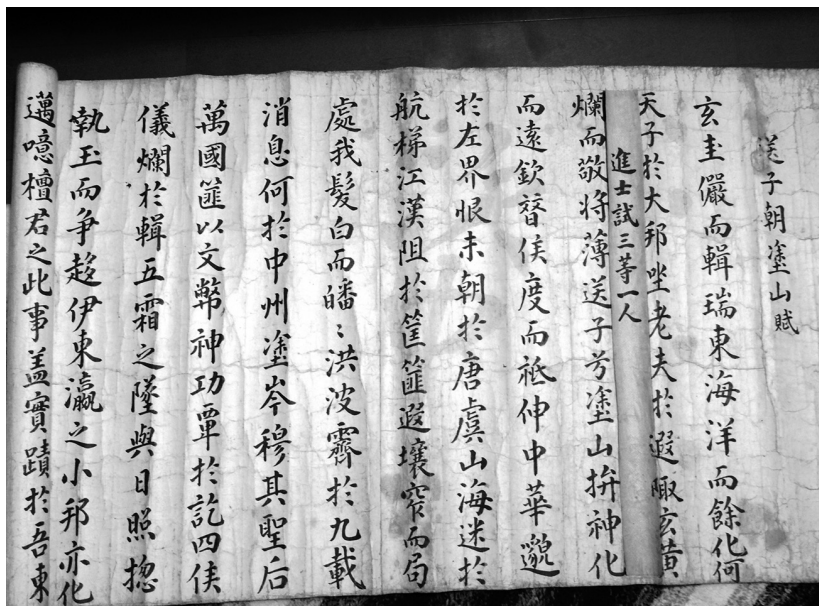 送子朝塗山賦
玄圭儼而輯瑞東海洋而餘化何
天子於大邦坐老夫於遐陬玄黃
進士試三等一人
爛而敬將薄送子兮塗山拚神化
而遠欽督侯度而祗伸中華邈
於左界恨未朝於唐虞山海迷於
航梯江漢阻於筐篚遐壤窄而局
處我髮白而皤〻洪波霽於九載
消息何於中州塗岑穆其聖后
萬國篚以文幣神功覃於訖四侯
儀爛於輯五霜之墜與日照揔
執玉而爭趍伊東瀛之小邦亦化
邁噫檀君之此事盖實蹟於吾東